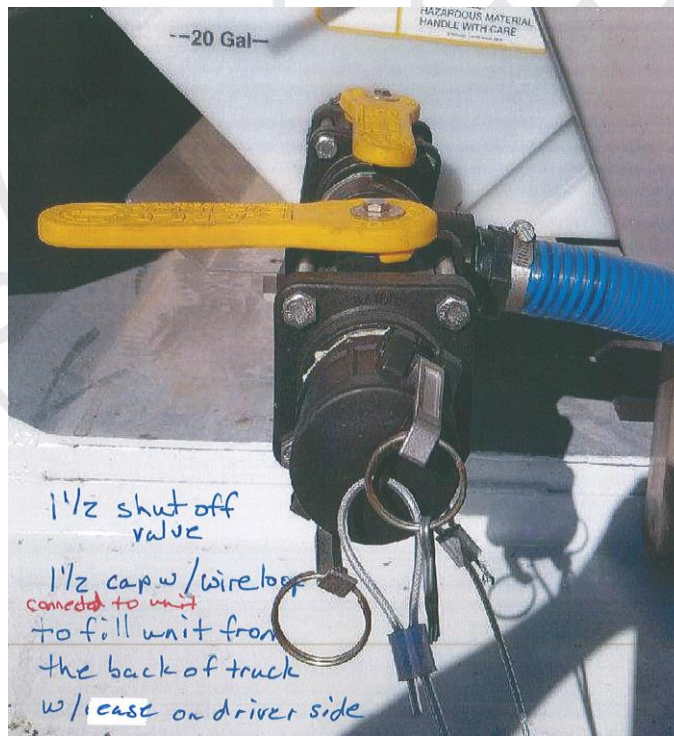 --20 Gal—
HAZARDOUS MATERIAL
HANDLE WITH CARE
1 1/2 shut off
value
1 1/2 cap w/ wire loop
connected to unit
to fill unit from
the back of truck
w/ ease on driver side